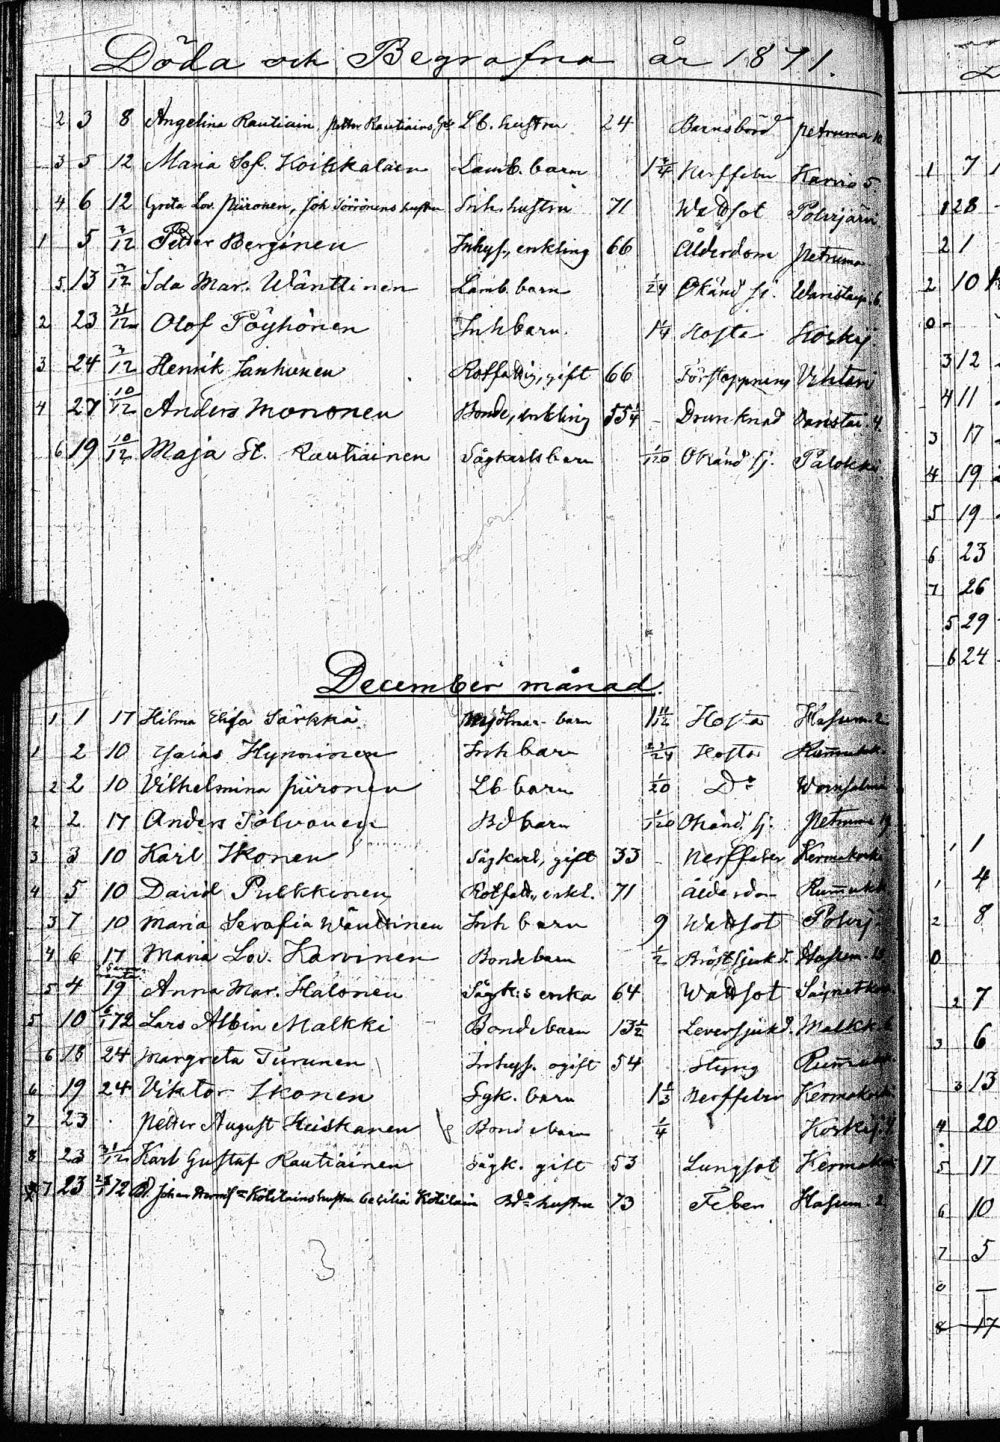 Döda och Begrafna år 1871.
2 3 8 Angelina Rautiain, Petter Rautiains Lb. hustru 24 Barnsbörd Petruma
3 5 12 Maria Sof. Koikkalain Lamb. barn Nerffeber Karvio 5
4 6 12 Greta Lov. Piironen, Joh hustru Inh. hustru 71 Wattsot Polvijärvi
1 5 3/12 Petter Berginen Inhys., enkling 66 Ålderdom Petruma
5 13 3/12 Ida Mar. Wänttinen Lamb. barn 1/24 Okänd sj. Waristaip. 6
2 23 31/12 Olof Pöyhönen Inh barn 1 1/4 Hosta Koskij
3 24 3/12 Henrik Janhunen Rotfattig, gift 66 Förstoppning Vihtari
4 27 10/12 Anders Mononen Bonde, enkling 55 1/4 Drunknad Varistai. 4
6 19 10/12 Maja St. Rautiainen Sågkarls barn 1/120 Okänd sj. Palokki
December månad.
1 1 17 Hilma Elisa Särkkä Mjölnar barn 1 11/12 Hosta Hasum. 2
1 2 10 Esaias Hynninen Inh barn 23/24 Hosta Rummukk.
2 2 10 Vilhelmina Piironen Lb barn 1/20 Do
2 2 17 Anders Tolvanen Bd barn 1/120 Okänd sj. Petruma 19
3 3 10 Karl Ikonen Sågkarl, gift 33 Nerffeber Kermakoski
4 5 10 David Pulkkinen Rotfatt., enkl. 71 Ålderdom Rummukk
3 7 10 Maria Serafia Wänttinen Inh barn 9 Wattsot Polvij
4 6 17 Maria Lov. Karvinen Bonde barn 1/2 Bröstsjukd. Hasum. 15
5 4 19 Anna Mar. Halonen Sågk:s enka 64 Wattsot
5 10 6/1 72 Lars Albin Malkki Bonde barn 13 1/2 Leversjukd. Malkk.
6 18 24 Margreta Turunen Inhys. ogift 54 Styng Rummukk
6 19 24 Viktor Ikonen Sgk. barn 1 1/3 Nerffeber Kermakoski
7 23 Petter August Heiskanen Bonde barn 1/4 Koskij. 4
8 23 31/12 Karl Gustaf Rautiainen Sågk. gift 53 Lungsot Kermakoski
7 23 72 Bd. Johan Kotilains hustru Cecilia Kotilain Bde hustru 73 Feber Hasum. 2
3
1 7
1 28
2 1
2 10
0 -
3 12
4 11
3 17
4 19
5 19
6 23
7 26
5 29
6 24
1 1
1 4
2 8
0
2 7
3 6
3 13
4 20
5 17
6 10
7 5
0 -
8 17